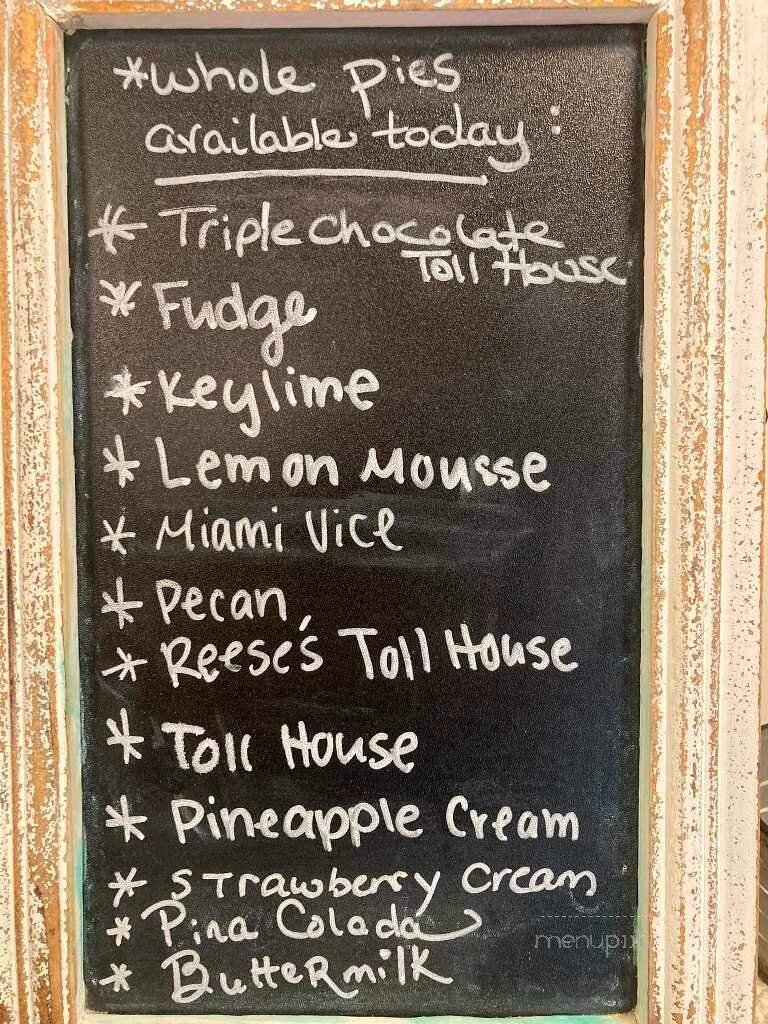 *whole pies
available today :
* Triple Chocolate
Toll House
* Fudge
* Keylime
* Lemon Mousse
* Miami Vice
* Pecan
* Reese's Toll House
* Toll House
* Pineapple Cream
* Strawberry Cream
* Pina Colada
* Buttermilk
menupix